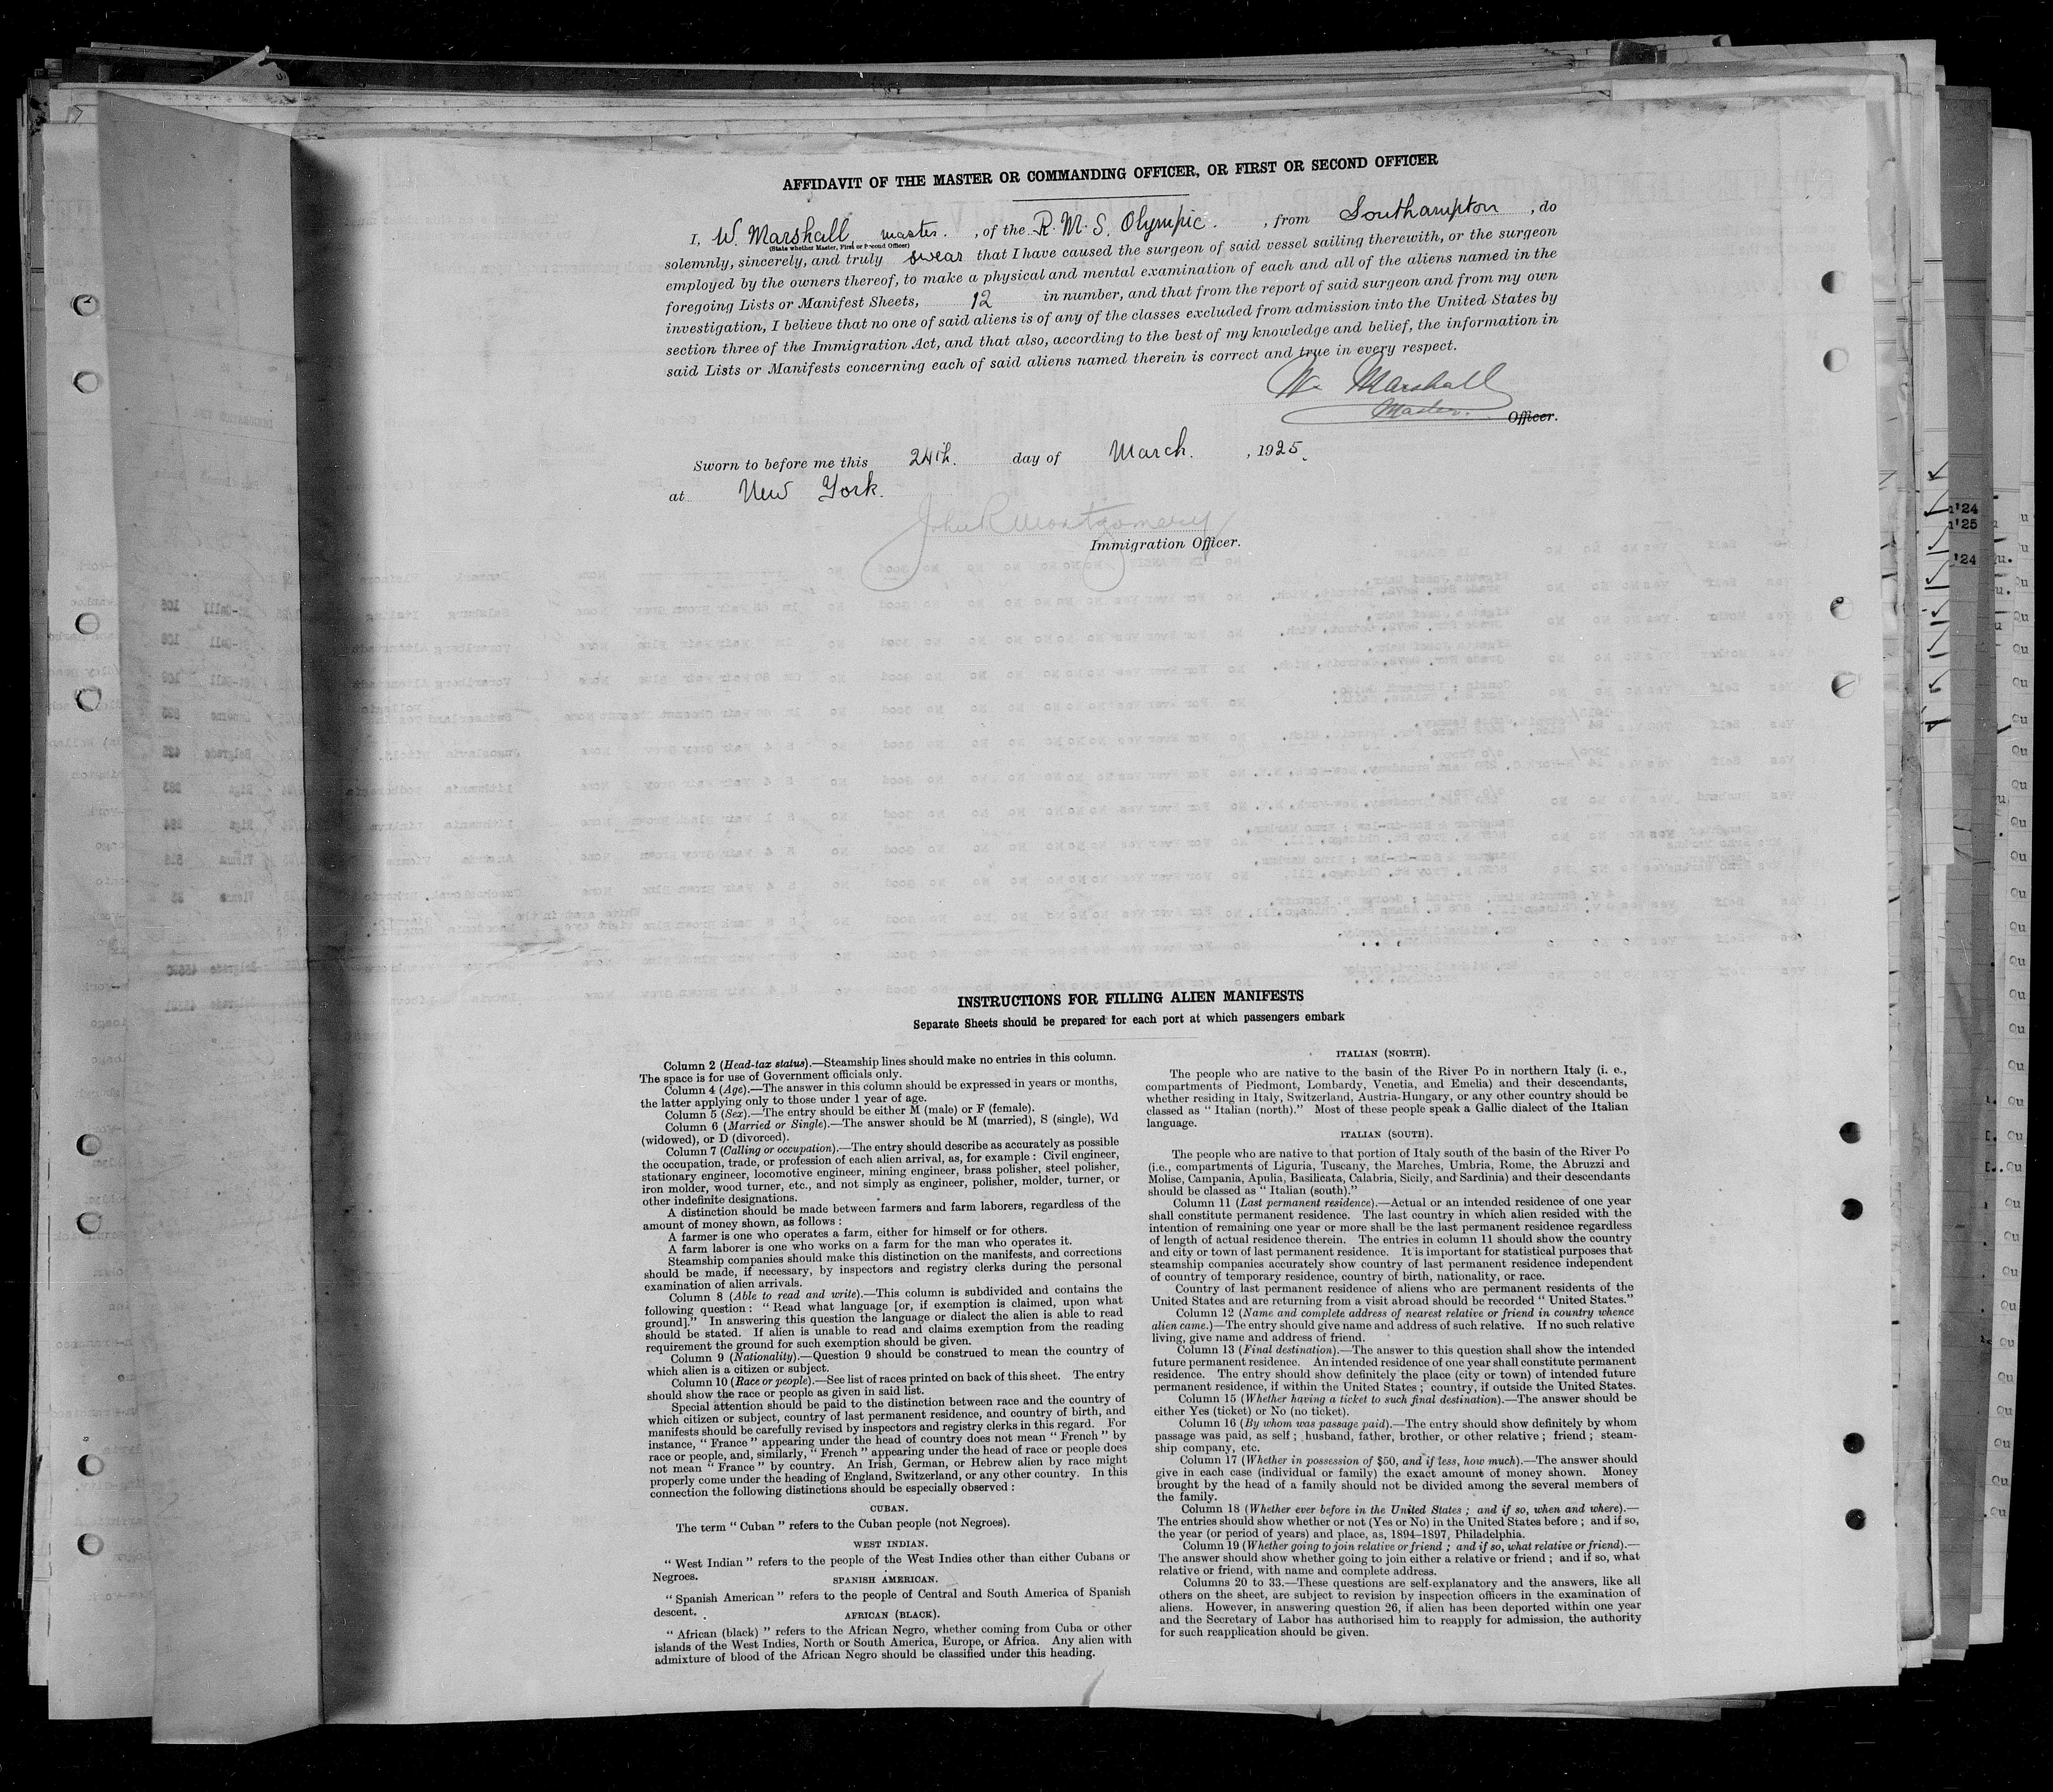 AFFIDAVIT OF THE MASTER OR COMMANDING OFFICER, OR FIRST OR SECOND OFFICER
I, W. Marshall master. , of the R.M.S. Olympic. , from Southampton , do
(State whether Master, First or Second Officer)
solemnly, sincerely, and truly swear that I have caused the surgeon of said vessel sailing therewith, or the surgeon
employed by the owners thereof, to make a physical and mental examination of each and all of the aliens named in the
foregoing Lists or Manifest Sheets, 12 in number, and that from the report of said surgeon and from my own
investigation, I believe that no one of said aliens is of any of the classes excluded from admission into the United States by
section three of the Immigration Act, and that also, according to the best of my knowledge and belief, the information in
said Lists or Manifests concerning each of said aliens named therein is correct and true in every respect.
W. Marshall
Master. Officer.
Sworn to before me this 24th. day of March. , 1925.
at New York.
John R Montgomery
Immigration Officer.
INSTRUCTIONS FOR FILLING ALIEN MANIFESTS
Separate Sheets should be prepared for each port at which passengers embark
Column 2 (Head-tax status).—Steamship lines should make no entries in this column.
The space is for use of Government officials only.
Column 4 (Age).—The answer in this column should be expressed in years or months,
the latter applying only to those under 1 year of age.
Column 5 (Sex).—The entry should be either M (male) or F (female).
Column 6 (Married or Single).—The answer should be M (married), S (single), Wd
(widowed), or D (divorced).
Column 7 (Calling or occupation).—The entry should describe as accurately as possible
the occupation, trade, or profession of each alien arrival, as, for example : Civil engineer,
stationary engineer, locomotive engineer, mining engineer, brass polisher, steel polisher,
iron molder, wood turner, etc., and not simply as engineer, polisher, molder, turner, or
other indefinite designations.
A distinction should be made between farmers and farm laborers, regardless of the
amount of money shown, as follows :
A farmer is one who operates a farm, either for himself or for others.
A farm laborer is one who works on a farm for the man who operates it.
Steamship companies should make this distinction on the manifests, and corrections
should be made, if necessary, by inspectors and registry clerks during the personal
examination of alien arrivals.
Column 8 (Able to read and write).—This column is subdivided and contains the
following question : “ Read what language [or, if exemption is claimed, upon what
ground].” In answering this question the language or dialect the alien is able to read
should be stated. If alien is unable to read and claims exemption from the reading
requirement the ground for such exemption should be given.
Column 9 (Nationality).—Question 9 should be construed to mean the country of
which alien is a citizen or subject.
Column 10 (Race or people).—See list of races printed on back of this sheet. The entry
should show the race or people as given in said list.
Special attention should be paid to the distinction between race and the country of
which citizen or subject, country of last permanent residence, and country of birth, and
manifests should be carefully revised by inspectors and registry clerks in this regard. For
instance, “ France ” appearing under the head of country does not mean “ French ” by
race or people, and, similarly, “ French ” appearing under the head of race or people does
not mean “ France ” by country. An Irish, German, or Hebrew alien by race might
properly come under the heading of England, Switzerland, or any other country. In this
connection the following distinctions should be especially observed :
CUBAN.
The term “ Cuban ” refers to the Cuban people (not Negroes).
WEST INDIAN.
“ West Indian ” refers to the people of the West Indies other than either Cubans or
Negroes.
SPANISH AMERICAN.
“ Spanish American ” refers to the people of Central and South America of Spanish
descent.
AFRICAN (BLACK).
“ African (black) ” refers to the African Negro, whether coming from Cuba or other
islands of the West Indies, North or South America, Europe, or Africa. Any alien with
admixture of blood of the African Negro should be classified under this heading.
ITALIAN (NORTH).
The people who are native to the basin of the River Po in northern Italy (i. e.,
compartments of Piedmont, Lombardy, Venetia, and Emelia) and their descendants,
whether residing in Italy, Switzerland, Austria-Hungary, or any other country should be
classed as “ Italian (north).” Most of these people speak a Gallic dialect of the Italian
language.
ITALIAN (SOUTH).
The people who are native to that portion of Italy south of the basin of the River Po
(i.e., compartments of Liguria, Tuscany, the Marches, Umbria, Rome, the Abruzzi and
Molise, Campania, Apulia, Basilicata, Calabria, Sicily, and Sardinia) and their descendants
should be classed as “ Italian (south).”
Column 11 (Last permanent residence).—Actual or an intended residence of one year
shall constitute permanent residence. The last country in which alien resided with the
intention of remaining one year or more shall be the last permanent residence regardless
of length of actual residence therein. The entries in column 11 should show the country
and city or town of last permanent residence. It is important for statistical purposes that
steamship companies accurately show country of last permanent residence independent
of country of temporary residence, country of birth, nationality, or race.
Country of last permanent residence of aliens who are permanent residents of the
United States and are returning from a visit abroad should be recorded “ United States.”
Column 12 (Name and complete address of nearest relative or friend in country whence
alien came.)—The entry should give name and address of such relative. If no such relative
living, give name and address of friend.
Column 13 (Final destination).—The answer to this question shall show the intended
future permanent residence. An intended residence of one year shall constitute permanent
residence. The entry should show definitely the place (city or town) of intended future
permanent residence, if within the United States ; country, if outside the United States.
Column 15 (Whether having a ticket to such final destination).—The answer should be
either Yes (ticket) or No (no ticket).
Column 16 (By whom was passage paid).—The entry should show definitely by whom
passage was paid, as self ; husband, father, brother, or other relative ; friend ; steam-
ship company, etc.
Column 17 (Whether in possession of $50, and if less, how much).—The answer should
give in each case (individual or family) the exact amount of money shown. Money
brought by the head of a family should not be divided among the several members of
the family.
Column 18 (Whether ever before in the United States ; and if so, when and where).—
The entries should show whether or not (Yes or No) in the United States before ; and if so,
the year (or period of years) and place, as, 1894–1897, Philadelphia.
Column 19 (Whether going to join relative or friend ; and if so, what relative or friend).—
The answer should show whether going to join either a relative or friend ; and if so, what
relative or friend, with name and complete address.
Columns 20 to 33.—These questions are self-explanatory and the answers, like all
others on the sheet, are subject to revision by inspection officers in the examination of
aliens. However, in answering question 26, if alien has been deported within one year
and the Secretary of Labor has authorised him to reapply for admission, the authority
for such reapplication should be given.